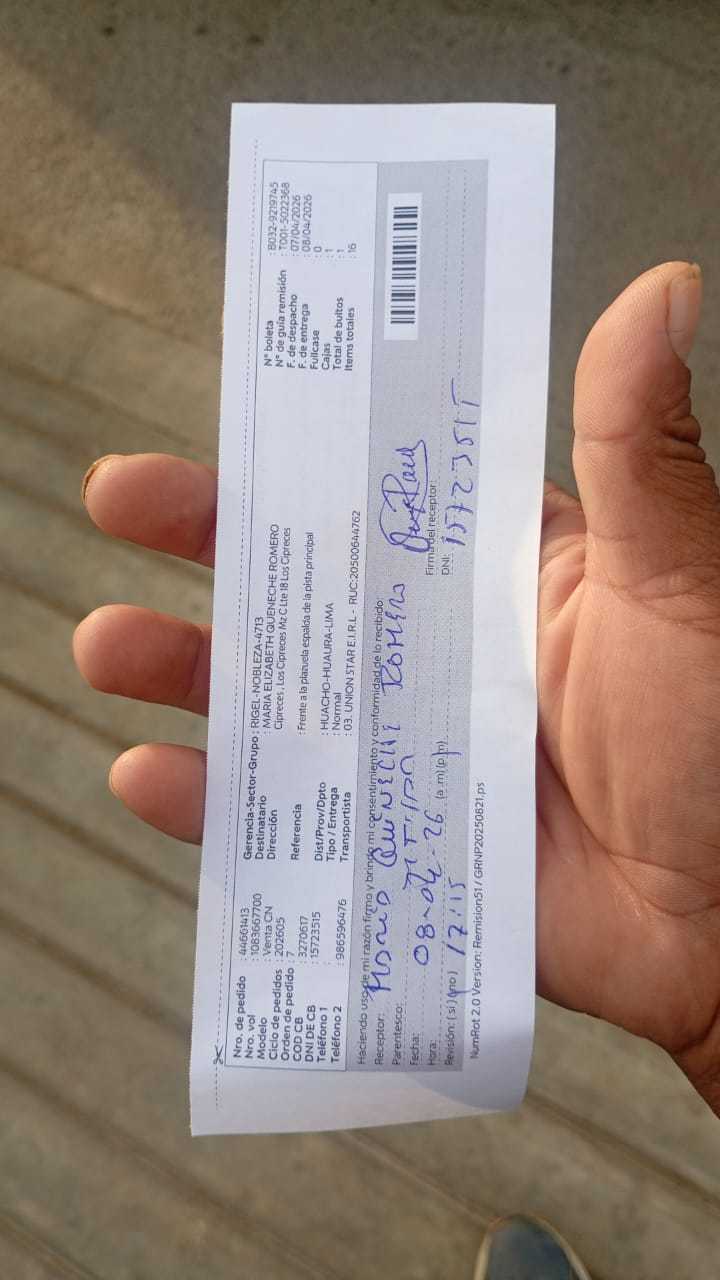 Nro. de pedido : 44661413
Nro. vol : 1083667700
Modelo : Venta CN
Ciclo de pedidos : 202605
Orden de pedido : 7
COD CB : 3270617
DNI DE CB : 15723515
Teléfono 1 :
Teléfono 2 : 986596476
Gerencia-Sector-Grupo : RIGEL-NOBLEZA-4713
Destinatario : MARIA ELIZABETH QUENECHE ROMERO
Dirección : Cipreces, Los Cipreces Mz C Lte 18 Los Cipreces
Referencia : Frente a la plazuela espalda de la pista principal
Dist/Prov/Dpto : HUACHO-HUAURA-LIMA
Tipo / Entrega : Normal
Transportista : 03. UNION STAR E.I.R.L - RUC:20500644762
N° boleta : B032-9219745
N° de guía remisión : T001-5022368
F. de despacho : 07/04/2026
F. de entrega : 08/04/2026
Fullcase : 0
Cajas : 1
Total de bultos : 1
Items totales : 16
Haciendo uso de mi razón firmo y brindo mi consentimiento y conformidad de lo recibido
Receptor: Romero
Parentesco:
Fecha: 08-04-26
Hora: 17:15 (a.m) (p.m)
Revisión: (si) (no)
Firma del receptor:
DNI: 15723515
NumRot 2.0 Version: Remision51 / GRNP20250821.ps